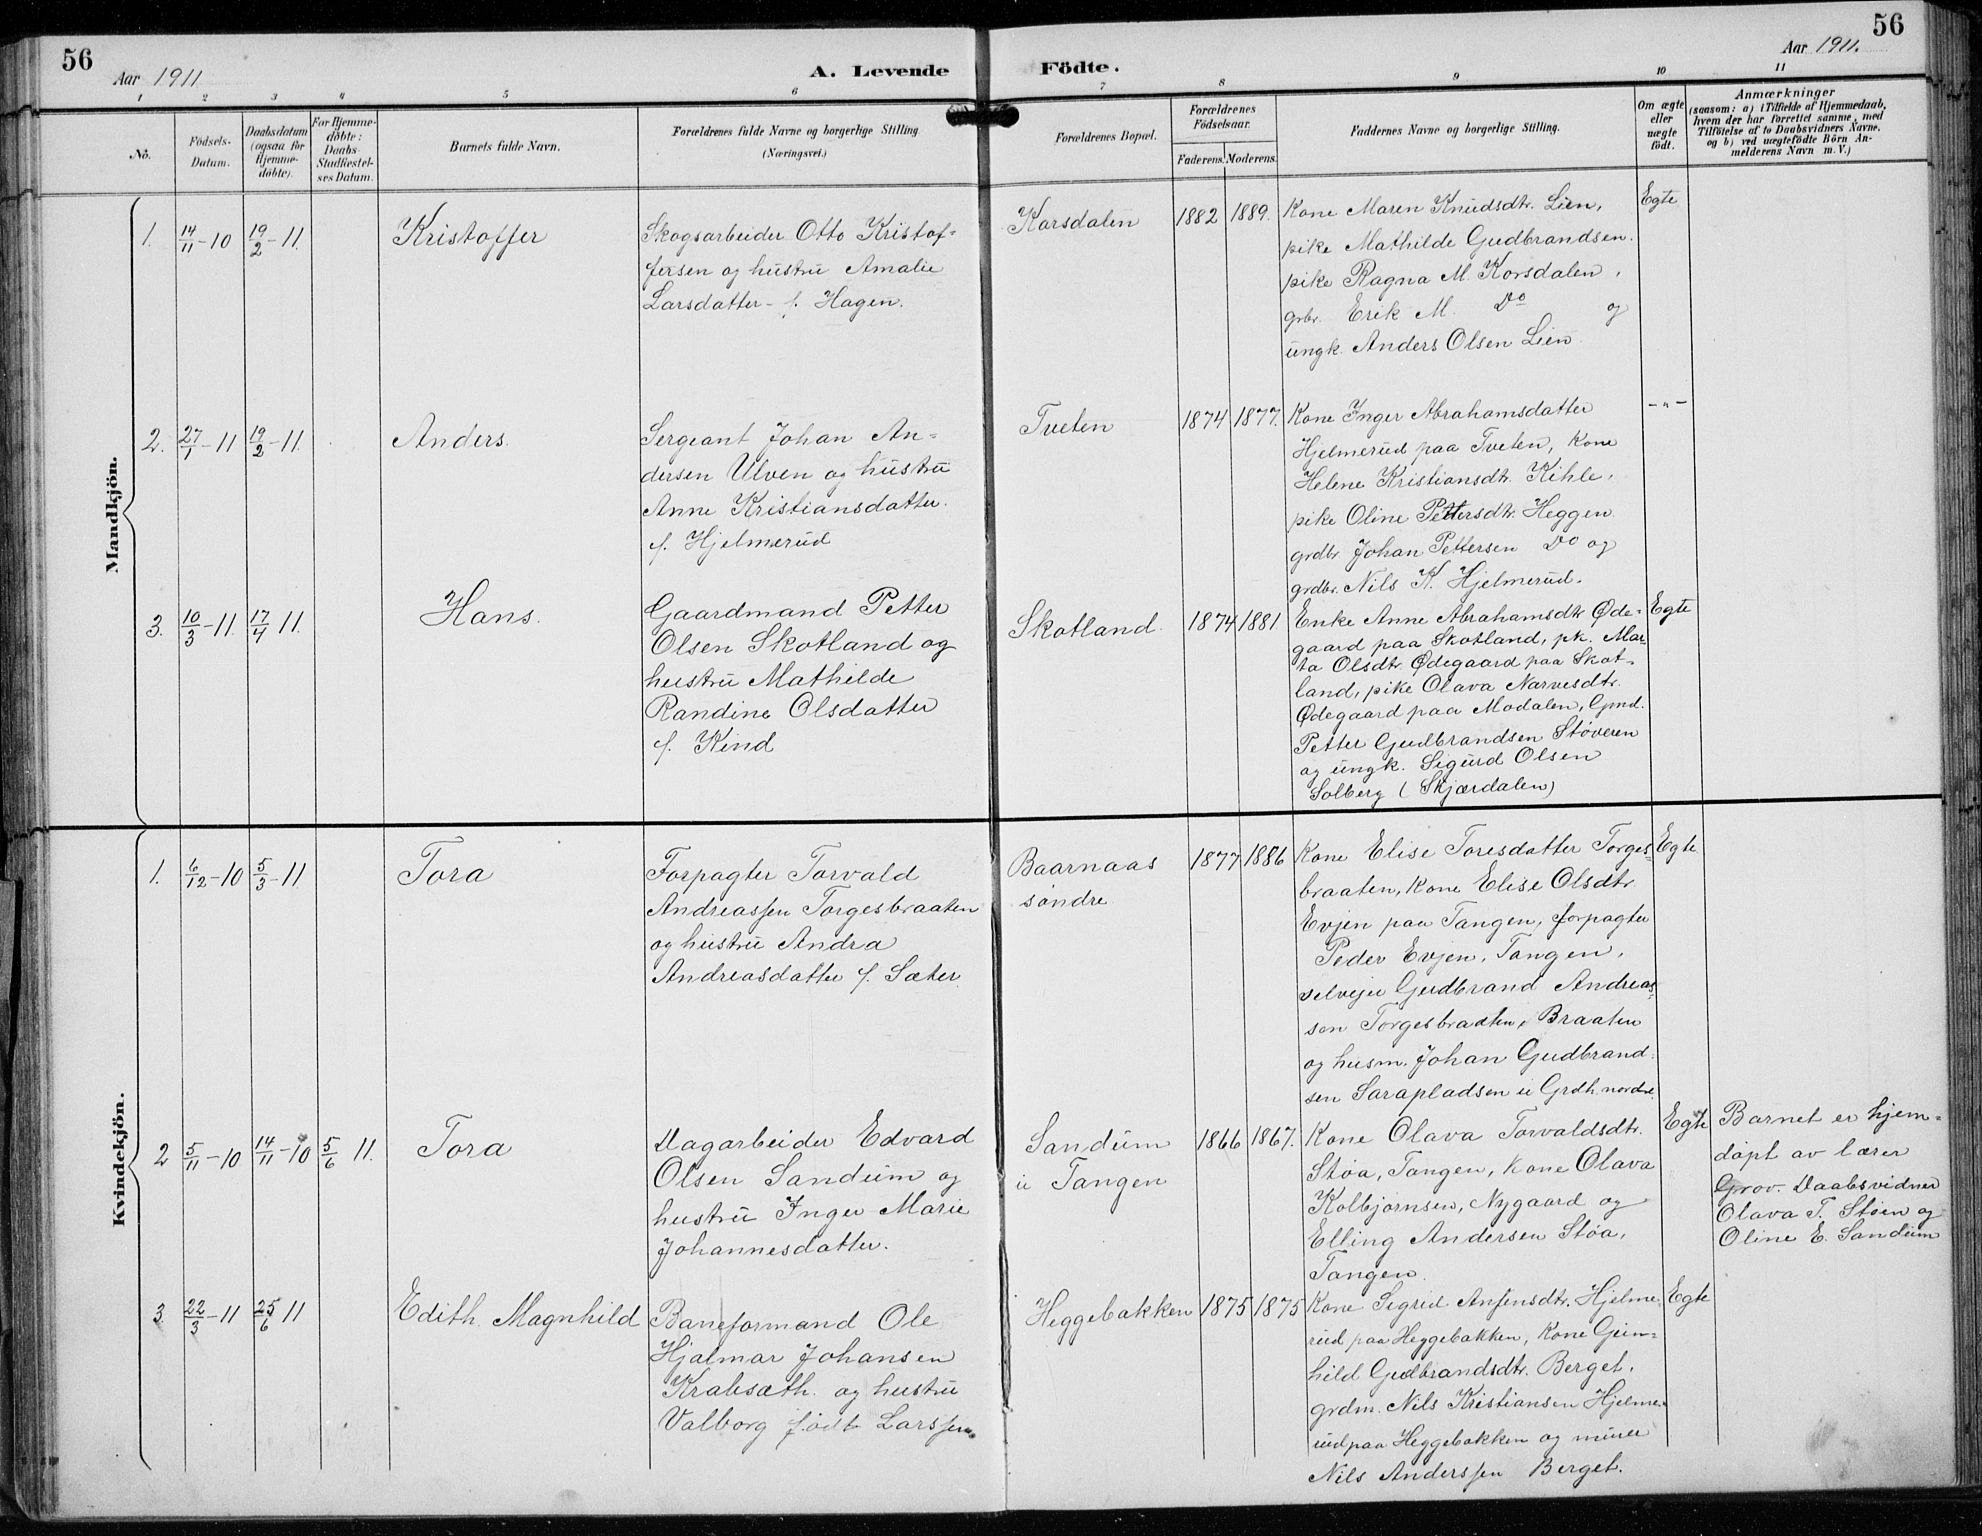 56
Aar 1911
A. Levende
Födte.
Aar 1911.
56
1 2 3 4 5 6 7 8 9 10 11
No.
Födsels-
Datum.
Daabsdatum
(ogsaa for
Hjemme-
döbte).
For Hjemme-
döbte:
Daabs-
Stadfæstel-
ses Datum.
Barnets fulde Navn.
Forældrenes fulde Navne og borgerlige Stilling.
(Næringsvei.)
Forældrenes Bopæl.
Forældrenes
Födselsaar.
Faderens. Moderens.
Faddernes Navne og borgerlige Stilling.
Om ægte
eller
uægte
födt.
Anmærkninger
(saasom: a) i Tilfælde af Hjemmedaab,
hvem der har forrettet samme, med
Tilföielse af to Daabsvidners Navne,
og b) ved uægtefödte Börn An-
melderens Navn m. V.)
Mandkjön.
1. 14/11-10 19/2-11.
Kristoffer
Skogsarbeider Otto Kristof-
fersen og hustru Amalie
Larsdatter - f. Hagen.
Korsdalen
1882 1889.
Kone Maren Knudsdtr. Lien,
pike Mathilde Gudbrandsen.
pike Ragna M. Korsdalen,
grbr. Erik M. Do og
ungk. Anders Olsen Lien
Egte
2. 27/1-11 19/2-11.
Anders.
Sergeant Johan An-
dersen Ulven og hustru
Anne Kristiansdatter.
f. Hjelmerud
Tveten
1874 1877.
Kone Inger Abrahamsdatter
Hjelmerud paa Tveten, Kone
Helene Kristiansdtr. Kihle,
pike Oline Pettersdtr. Heggen
grdbr. Johan Pettersen Do og
grdbr. Nils K. Hjelmerud.
-"-
3. 10/3-11. 17/4 11.
Hans.
Gaardmand Petter
Olsen Skotland og
hustru Mathilde
Randine Olsdatter
f. Kind
Skotland.
1874 1881
Enke Anne Abrahamsdtr Øde-
gaard paa Skotland, pk. Mar-
ta Olsdtr. Ødegaard paa Skot-
land, pike Olava Narvesdtr.
Ødegaard paa Modalen, Gmd.
Petter Gudbrandsen Støveren
og ungk. Sigurd Olsen
Solberg (Skjærdalen)
Egte
Kvindekjön.
1. 6/12-10 5/3-11
Tora
Forpagter Torvald
Andreassen Torgesbraaten
og hustru Andra
Andreasdatter f. Sæter.
Baarnaas
søndre
1877 1886
Kone Elise Toresdatter Torges-
braaten, Kone Elise Olsdtr.
Evjen paa Tangen, forpagter
Peder Evjen, Tangen,
selveier Gudbrand Andreas-
sen Torgesbraaten, Braaten
og husm. Johan Gudbrand-
sen Sarapladsen u Grdh. nordre
Egte
2 5/11-10 14/11-10 5/6 11.
Tora
Dagarbeider Edvard
Olsen Sandum og
hustru Inger Marie
Johannesdatter.
Sandum
u Tangen
1866 1867.
Kone Olava Torvaldsdtr.
Støa, Tangen, Kone Olava
Kolbjørnsen, Nygaard og
Elling Andersen Støa,
Tangen.
Egte
Barnet er hjem-
døpt av lærer
Grov. Daabsvidner
Olava T. Støen og
Oline E. Sandum
3. 22/3-11 25/6 11
Edith Magnhild
Baneformand Ole
Hjalmar Johansen
Krabsæth. og hustru
Valborg født Larssen.
Heggebakken
1875 1875
Kone Sigrid Anfensdtr. Hjelme-
rud paa Heggebakken, Kone Gun-
hild Gudbrandsdtr. Berget,
grdm. Nils Kristiansen Hjelme-
rud paa Heggebakken og murer
Nils Anderssen Berget.
Egte